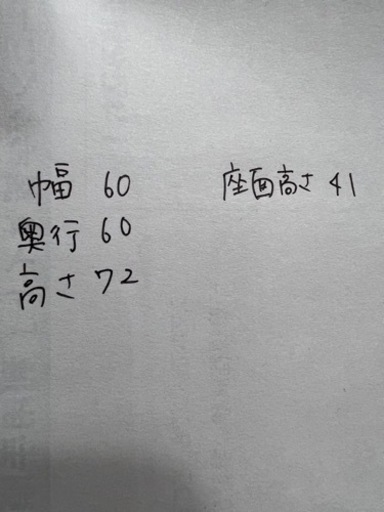 幅 60
奥行 60
高さ 72
座面高さ 41